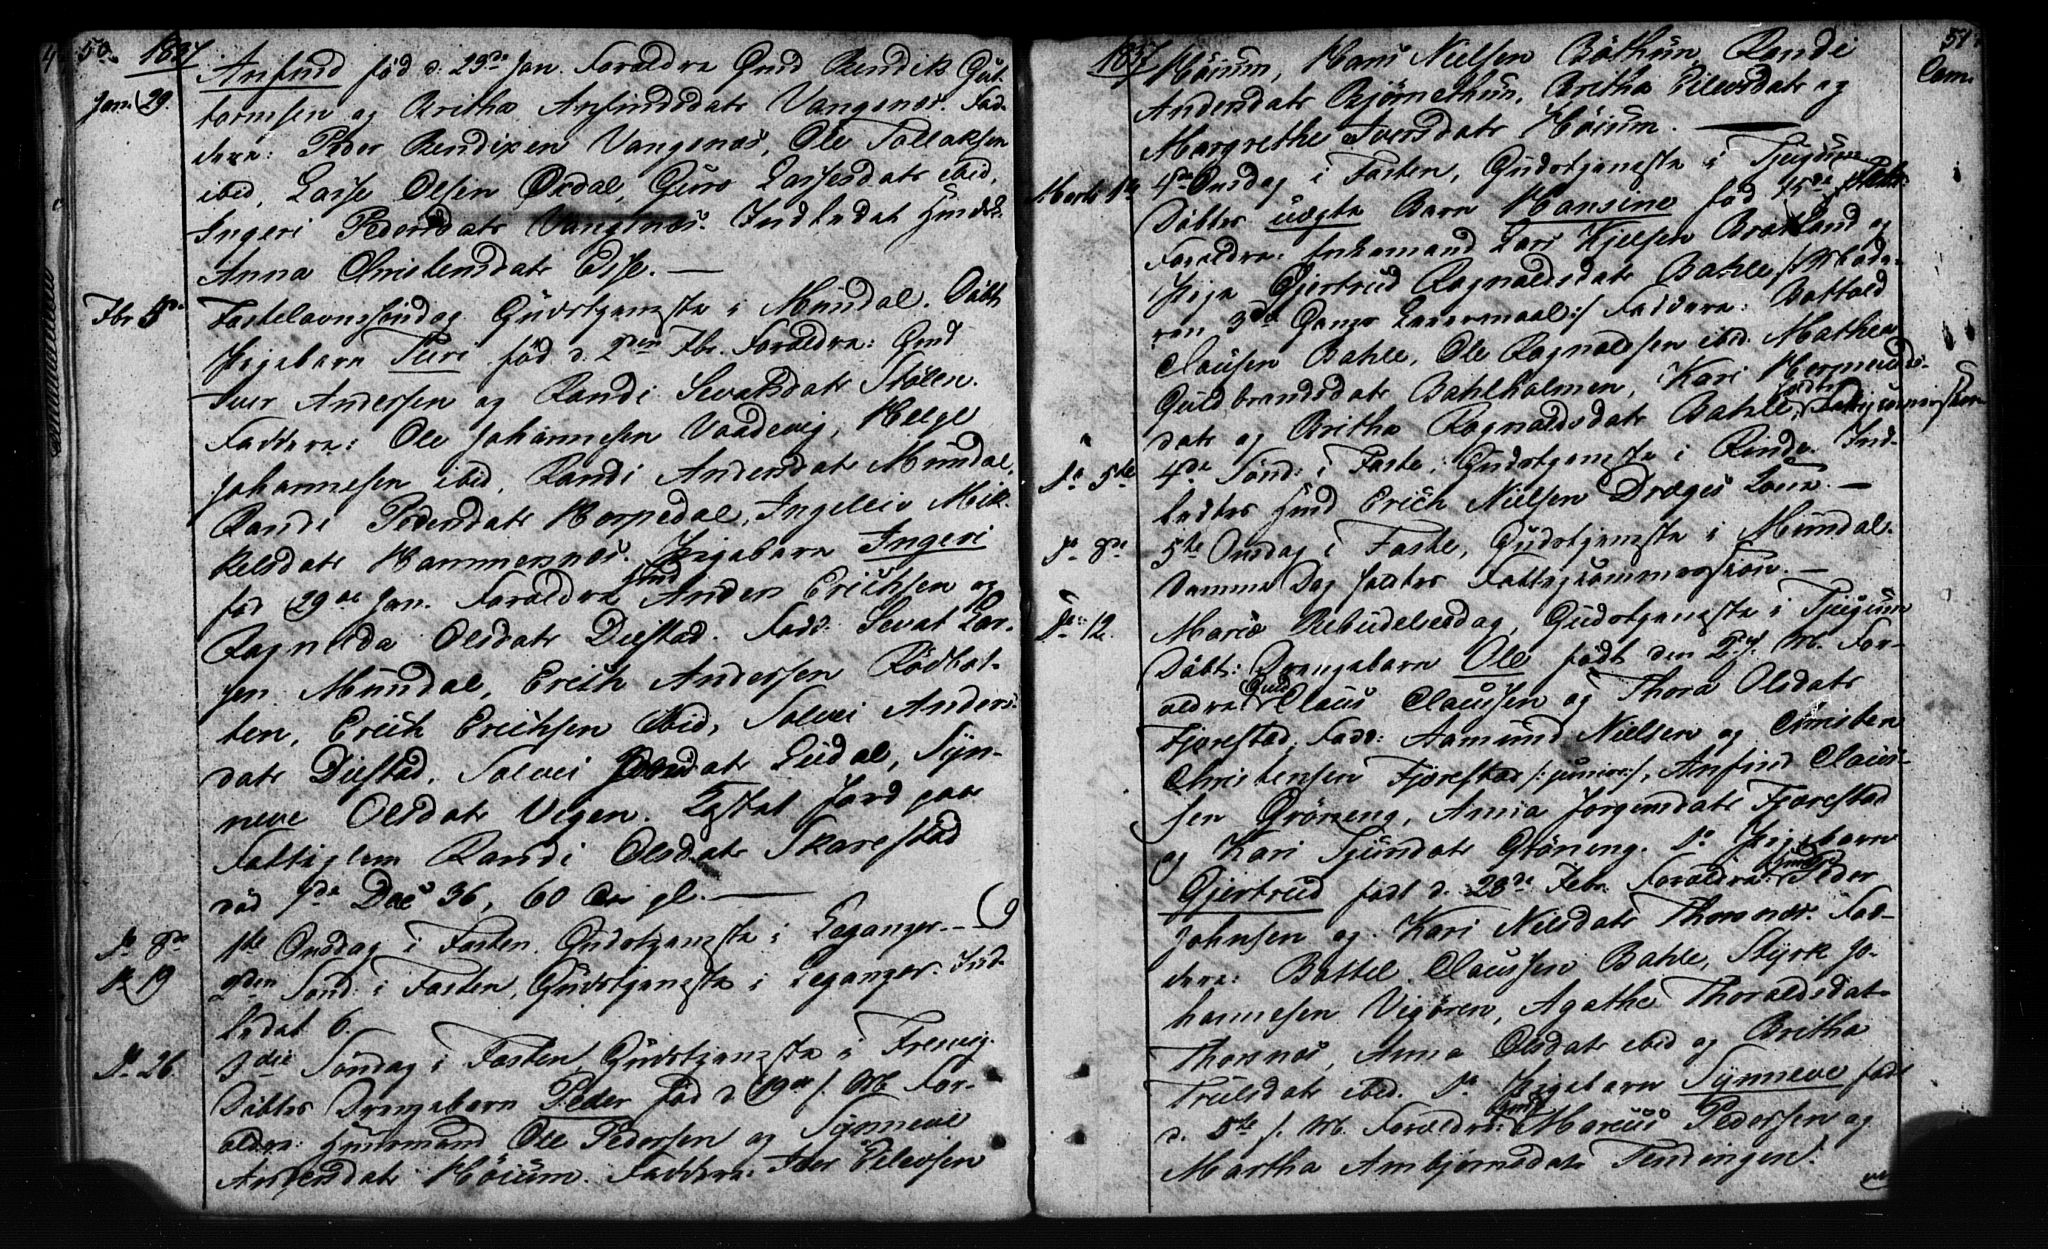 50. 1837
Jan. 29. Anfind fød d. 23de Jan. Forældre Gmd Bendik Gut-
tormsen og Britha Anfindsdatr Vangsnæs. Fad-
dere: Peder Bendixen Vangsnæs, Ole Tollaksen
ibid, Lasse Olsen Oxdal, Guro Lassesdatr ibid,
Ingeri Pedersdatr Vangsnæs. Indledet
Anna Christensdatr Esse. —
Fbr 5te Fastelavnssøndag Gudstjeneste i Mundal. Døbt
Pigebarn Turi fød d. 2den Fbr. Forældre: Gmd
Iver Andersen og Randi Sevatsdatr Stølen.
Faddere: Ole Johannesen Vaadevig, Helge
Johannesen ibid, Randi Andersdatr Mundal,
Randi Pedersdatr Horpedal, Ingeleiv Mik-
kelsdatr Hammersnæs. Pigebarn Ingeri
fød 29de Jan. Forældre Gmd Anders Erichsen og
Ragnilda Olsdatr Distad. Fadd: Sevat Lar-
sen Mundal, Erich Andersen Rødhol-
ten, Erich Erichsen ibid, Solvei Anders-
datr Distad, Solvei datr Lidal, Syn-
neve Olsdatr Vigen. Jord paa
Fattiglem Randi Olsdatr Skarestad
død de Dec 36, 60 Aar gl. —
Do 8de 1ste Onsdag i Fasten Gudstjeneste i Leganger. —
Do 19 2den Sønd: i Fasten, Gudstjeneste i Leganger. Ind-
ledet 6.
Do 26. 3die Søndag i Fasten Gudstjeneste i Fresvig.
Døbtes Drengebarn Peder fød d. 19de f. M. For-
ældre: Huusmand Ole Pedersen og Synneve
Andersdatr Høium. Faddere: Iver Eilevsen
1837 51.
Høium, Hans Nielsen Bøthun, Randi
Andersdatr Bjørnethun, Britha Eilevsdatr og
Margrethe Iversdatr Høium. —
Marts 1ste 4de Onsdag i Fasten, Gudstjeneste i Tjugum
Døbtes uægte Barn Hansine fød 15de Febr.
Forældre: Enkemand Lars Kjelsen Bratland og
Pige Gjertrud Ragnaldsdatr Bahle /:
ren 3de Gangs Leiermaal:/ Faddere: Bottold
Clausen Bahle, Ole Ragnaldsen ibid. Mathea
Guldbrandsdatr Bahleholmen, Kari Hermunds-
datr og Britha Ragnaldsdatr Bahle,
Do 5te 4de Sønd: i Faste, Gudstjeneste i Rinde. Ind-
ledtes Erich Nielsen Dræges Kone. —
Do 8de 5te Onsdag i Faste, Gudstjeneste i Mundal.
Samme Dag holdtes Fattigcommission. —
Do 12. Mariæ Bebudelsesdag, Gudstjeneste i Tjugum
Døbt: Drengebarn Ole født den 2. f. M. For-
ældre Gmd Claus Claussen og Thora Olsdatr
Fjærestad, Fadd: Aamund Nielsen og Christen
Christensen Fjærestad /:junior:/, Anfind Claus-
sen Grøneng, Anna Jørgensdatr Fjærestad
og Kari Sjursdatr Grøneng. Do Pigebarn
Gjertrud født d. 28de Febr Forældre: Peder
Johnsen og Kari Nilsdatr Thorsnæs. Fad-
dere: Bottel Claussen Bahle, Styrk Jo-
hannesen Vigøren, Agathe Thoraldsdatr
Thorsnæs, Anna Olsdatr ibid og Britha
Trulsdatr ibid. Do Pigebarn Synneve født
d. 5te f. M. Forældre: Gmd Marcus Pedersen og
Martha Ambjørnsdatr Tenningen.